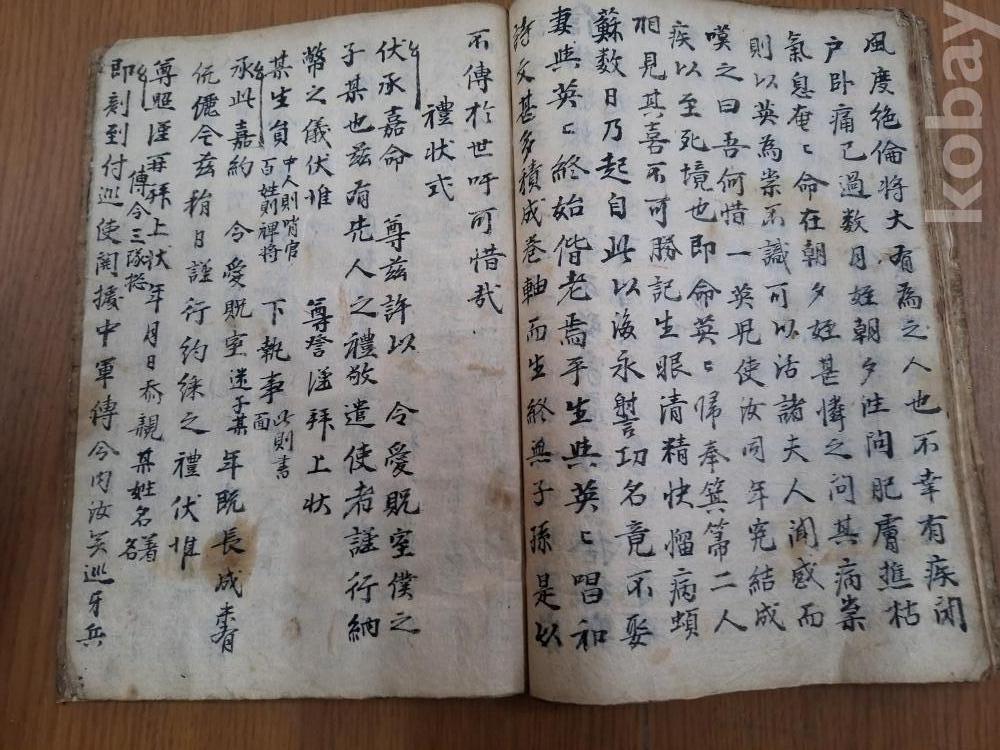 風度絶倫將大有為之人也不幸有疾閉
户卧痛已過数月姪朝夕往问肥膚憔枯
氣息奄〻命在朝夕姪甚憐之问其病祟
則以英為祟不識可以活諸夫人闻感而
嘆之曰吾何惜一英児使汝同年寃結成
疾以至死境也即命英〻帰奉箕箒二人
相見其喜不可勝記生眼清精快惱病頓
蘇数日乃起自此以海永誓功名竟不娶
妻與英〻終始偕老焉平生與英〻唱和
詩文甚多積成卷軸而生終無子孫是以
不傳於世吁可惜哉
禮状式
伏承嘉命 尊兹許以 令愛貺室僕之
子某也兹有先人之禮敬遣使者謹行納
幣之儀伏惟 尊 拜上状
某生負 中人則哨官 百姓則裨將 下執事 此則書面
承此嘉約 令愛貺室迷子某年既長成未有
伉儷令兹 日謹行約 之禮伏惟
尊照謹再拜上状年月日忝親某姓名著名
傳令三隊
即刻到付巡使関據中軍傳令内汝 巡牙兵
kobay